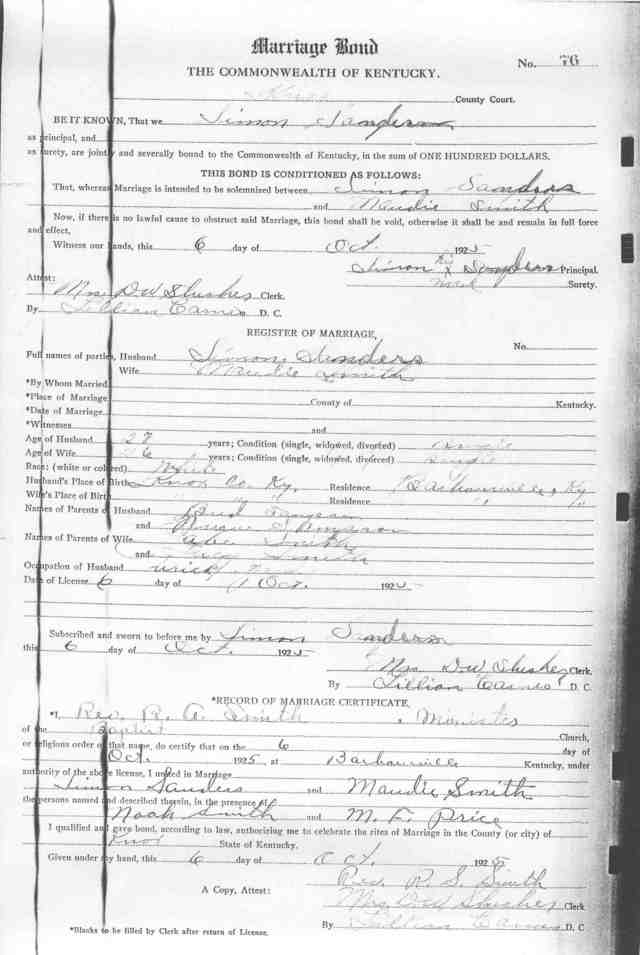 Marriage Bond
THE COMMONWEALTH OF KENTUCKY.
No. 76
Knox County Court.
BE IT KNOWN, That we Simon Sanders
as principal, and
as surety, are jointly and severally bound to the Commonwealth of Kentucky, in the sum of ONE HUNDRED DOLLARS.
THIS BOND IS CONDITIONED AS FOLLOWS:
That, whereas Marriage is intended to be solemnized between Simon Sanders
and Maudie Smith
Now, if there is no lawful cause to obstruct said Marriage, this bond shall be void, otherwise it shall be and remain in full force
and effect,
Witness our hands, this 6 day of Oct. 1925
Simon his X Sanders Principal.
mark Surety.
Attest:
Mrs D W Slusher Clerk.
By Lillian D. C.
REGISTER OF MARRIAGE,
No.
Full names of parties, Husband Simon Sanders
Wife Maudie Smith
*By Whom Married
*Place of Marriage County of Kentucky.
*Date of Marriage
*Witnesses and
Age of Husband 27 years; Condition (single, widowed, divorced) single
Age of Wife 26 years; Condition (single, widowed, divorced) single
Race: (white or colored) White
Husband's Place of Birth Knox Co. Ky. Residence Barbourville, Ky
Wife's Place of Birth " " " Residence " "
Names of Parents of Husband
and
Names of Parents of Wife Smith
and Smith
Occupation of Husband
Date of License 6 day of Oct. 1925
Subscribed and sworn to before me by Simon Sanders
this 6 day of Oct. 1925
Mrs D W Slusher Clerk.
By Lillian D. C.
*RECORD OF MARRIAGE CERTIFICATE.
*I, Rev. R. A. Smith, Minister
of the Baptist Church,
or religious order of that name, do certify that on the 6 day of
Oct. 1925 at Barbourville Kentucky, under
authority of the above license, I united in Marriage
Simon Sanders and Maudie Smith
the persons named and described therein, in the presence of
Noah Smith and M. F. Price
I qualified and gave bond, according to law, authorizing me to celebrate the rites of Marriage in the County (or city) of
Knox State of Kentucky.
Given under my hand, this 6 day of Oct. 1925
Rev. R. S. Smith
A Copy, Attest: Mrs D W Slusher Clerk
By Lillian D. C
*Blanks to be filled by Clerk after return of License.